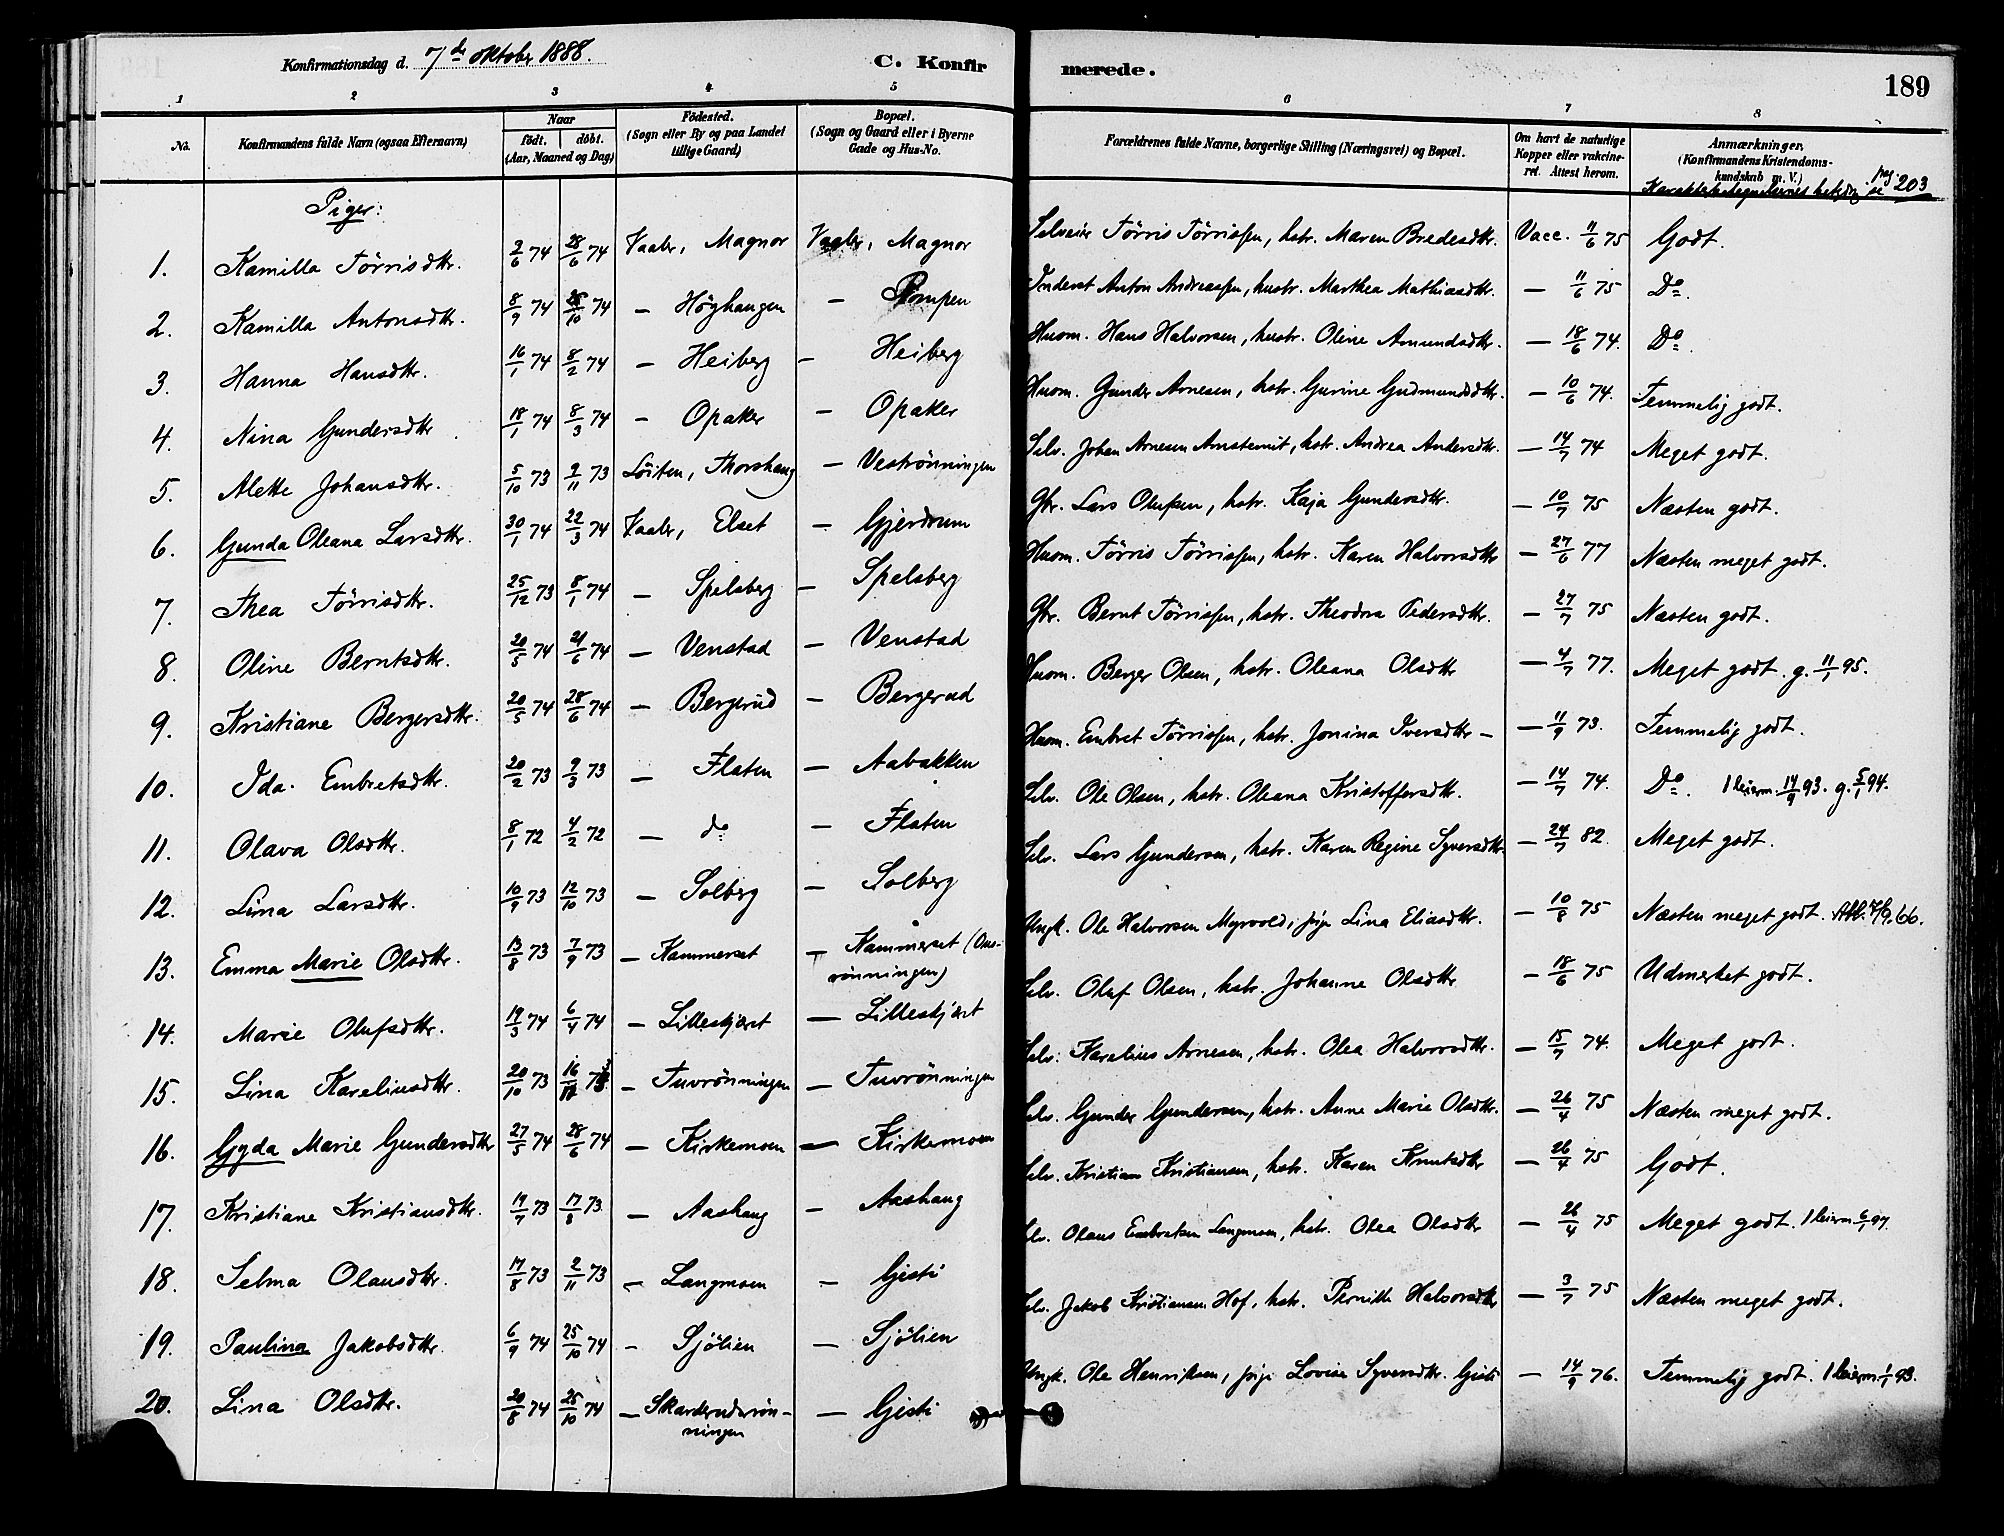 Konfirmationsdag d. 7de oktober 1888.
C. Konfirmerede.
189
1 2 3 4 5 6 7 8
No. Konfirmandens fulde Navn (ogsaa Efternavn) Naar født. døbt. (Aar, Maaned og Dag) Födested. (Sogn eller By og paa Landet tillige Gaard) Bopæl. (Sogn og Gaard eller i Byerne Gade og Hus-No. Forældrenes fulde Navne, borgerlige Stilling (Næringsvei) og Bopæl. Om havt de naturlige Kopper eller vakcineret. Attest herom. Anmærkninger. (Konfirmandens Kristendomskundskab m. V.)
pag. 203
Piger:
1. Kamilla Tørrisdtr. 2/6 74 28/6 74 Vaaler, Magnor Vaaler, Magnor Selveier Tørris Tørrissen, hstr. Maren Bredesdtr. Vacc. 11/6 75 Godt.
2. Kamilla Antonsdtr. 8/9 74 25/10 74 — Höghaugen — Pompen Inderst Anton Andreassen, hustr. Marthea Mathiasdtr. — 11/6 75 Do.
3. Hanna Hansdtr. 16/1 74 8/2 74 — Heiberg — Heiberg Husm. Hans Halvorsen, hustr. Oline Amundsdtr. — 18/6 74. Do.
4. Nina Gundersdtr. 18/1 74 8/3 74 — Opaker — Opaker Husm. Gunder Arnesen, hstr. Gurine Gudmundsdtr. — 10/6 74. Temmelig godt.
5. Alette Johansdtr. 5/10 73 9/11 73 Löiten, Thorshaug — Veströnningen Selv. Johan Arnesen Arnstemit, hstr. Andrea Andersdtr. — 14/7 74 Meget godt.
6. Gunda Oleana Larsdtr. 30/1 74 22/3 74 Vaaler, Elset — Gjerdrum Gbr. Lars Olufsen, hstr. Kaja Gundersdtr. — 10/7 75 Næsten godt.
7. Thea Tørrisdtr. 25/12 73 8/1 74 — Spelsberg — Spelsberg Husm. Tørris Tørrissen, hstr. Karen Halvorsdtr — 27/6 77 Næsten meget godt.
8. Oline Berntsdtr. 20/5 74 21/6 74 — Venstad — Venstad Gbr. Bernt Tørrissen, hstr. Theodora Pedersdtr. — 27/7 75 Næsten godt.
9. Kristiane Bergersdtr. 20/5 74 28/6 74 — Bergerud — Bergerud Husm. Berger Olsen, hstr. Oleana Olsdtr — 4/7 77. Meget godt. g. 11/1 95.
10. Ida Embretsdtr. 20/2 73 9/3 73 — Flaten — Aabakken Husm. Embret Tørrissen, hstr. Jonina Iversdtr — — 11/9 73. Temmelig godt.
11. Olava Olsdtr. 8/1 72 4/2 72 — do — Flaten Selv. Ole Olsen, hstr. Oleana Kristoffersdtr. — 14/7 74. Do. 1 leierm. 14/9 93. g. 5/1 94.
12. Lina Larsdtr. 10/9 73 12/10 73 — Solberg — Solberg Selv. Lars Gundersen, hstr. Karen Regine Syversdtr. — 24/7 82. Meget godt.
13. Emma Marie Olsdtr. 13/8 73 7/9 73 — Kammerset — Kammerset (Ons-rönningen) Ungk. Ole Halvorsen Myrvold, pige Lina Eliasdtr. — 10/8 75 Næsten meget godt.
14. Marie Olufsdtr. 19/3 74 6/4 74 — Lilleskjæret — Lilleskjæret Selv. Oluf Olsen, hstr. Johanne Olsdtr — 18/6 75 Udmerket godt.
15. Lina Kareliusdtr. 20/10 73 16/11 73 — Tuvrönningen — Tuvrönningen Selv. Karelius Arnesen, hstr. Olea Halvorsdtr. — 15/7 74. Meget godt.
16. Gyda Marie Gundersdtr 27/5 74 28/6 74 — Kirkemoen — Kirkemoen Selv. Gunder Gundersen, hstr. Anne Marie Olsdtr. — 26/4 75 Næsten meget godt.
17. Kristiane Kristiansdtr. 19/7 73 17/8 73 — Aashaug — Aashaug Selv. Kristian Kristiansen, hstr. Karen Knutsdtr — 26/4 75 Godt.
18. Selma Olausdtr. 17/8 73 2/11 73 — Langmoen — Gjesti Selv. Olaus Embretsen Langmoen, hstr. Olea Olsdtr — 26/4 75 Meget godt. 1 leierm. 6/1 97.
19. Paulina Jakobsdtr. 6/9 74 25/10 74 — Sjölien — Sjölien Selv. Jakob Kristiansen Hof, hstr. Pernille Halvorsdtr — 3/7 75 Næsten meget godt.
20. Lina Olsdtr. 20/8 74 25/10 74 — Skarderudsrön-ningen — Gjesti Ungk. Ole Henriksen, pige Lovise Syversdtr. Gjesti — 14/9 76. Temmelig godt. 1 leierm 1/1 93.